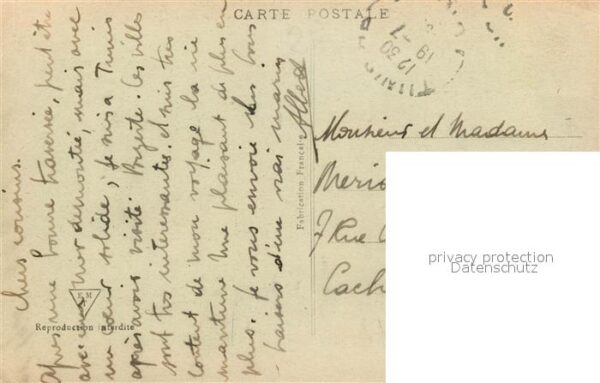 CARTE POSTALE
12 30
19 - 7
Chers cousins.
Après une bonne traversée, peut être
avec une mer démontée, mais avec
un cœur solide, je suis a Tunis
après avoir visité Bizerte. les villes
sont très interessantes et suis très
content de mon voyage la vie
maritime me plaisant de plus en
plus. Je vous envoie des bons
baisers d'un vrai marin
Monsieur et Madame
7 Rue
Cach
Fabrication Française
Reproduction interdite
privacy protection
Datenschutz